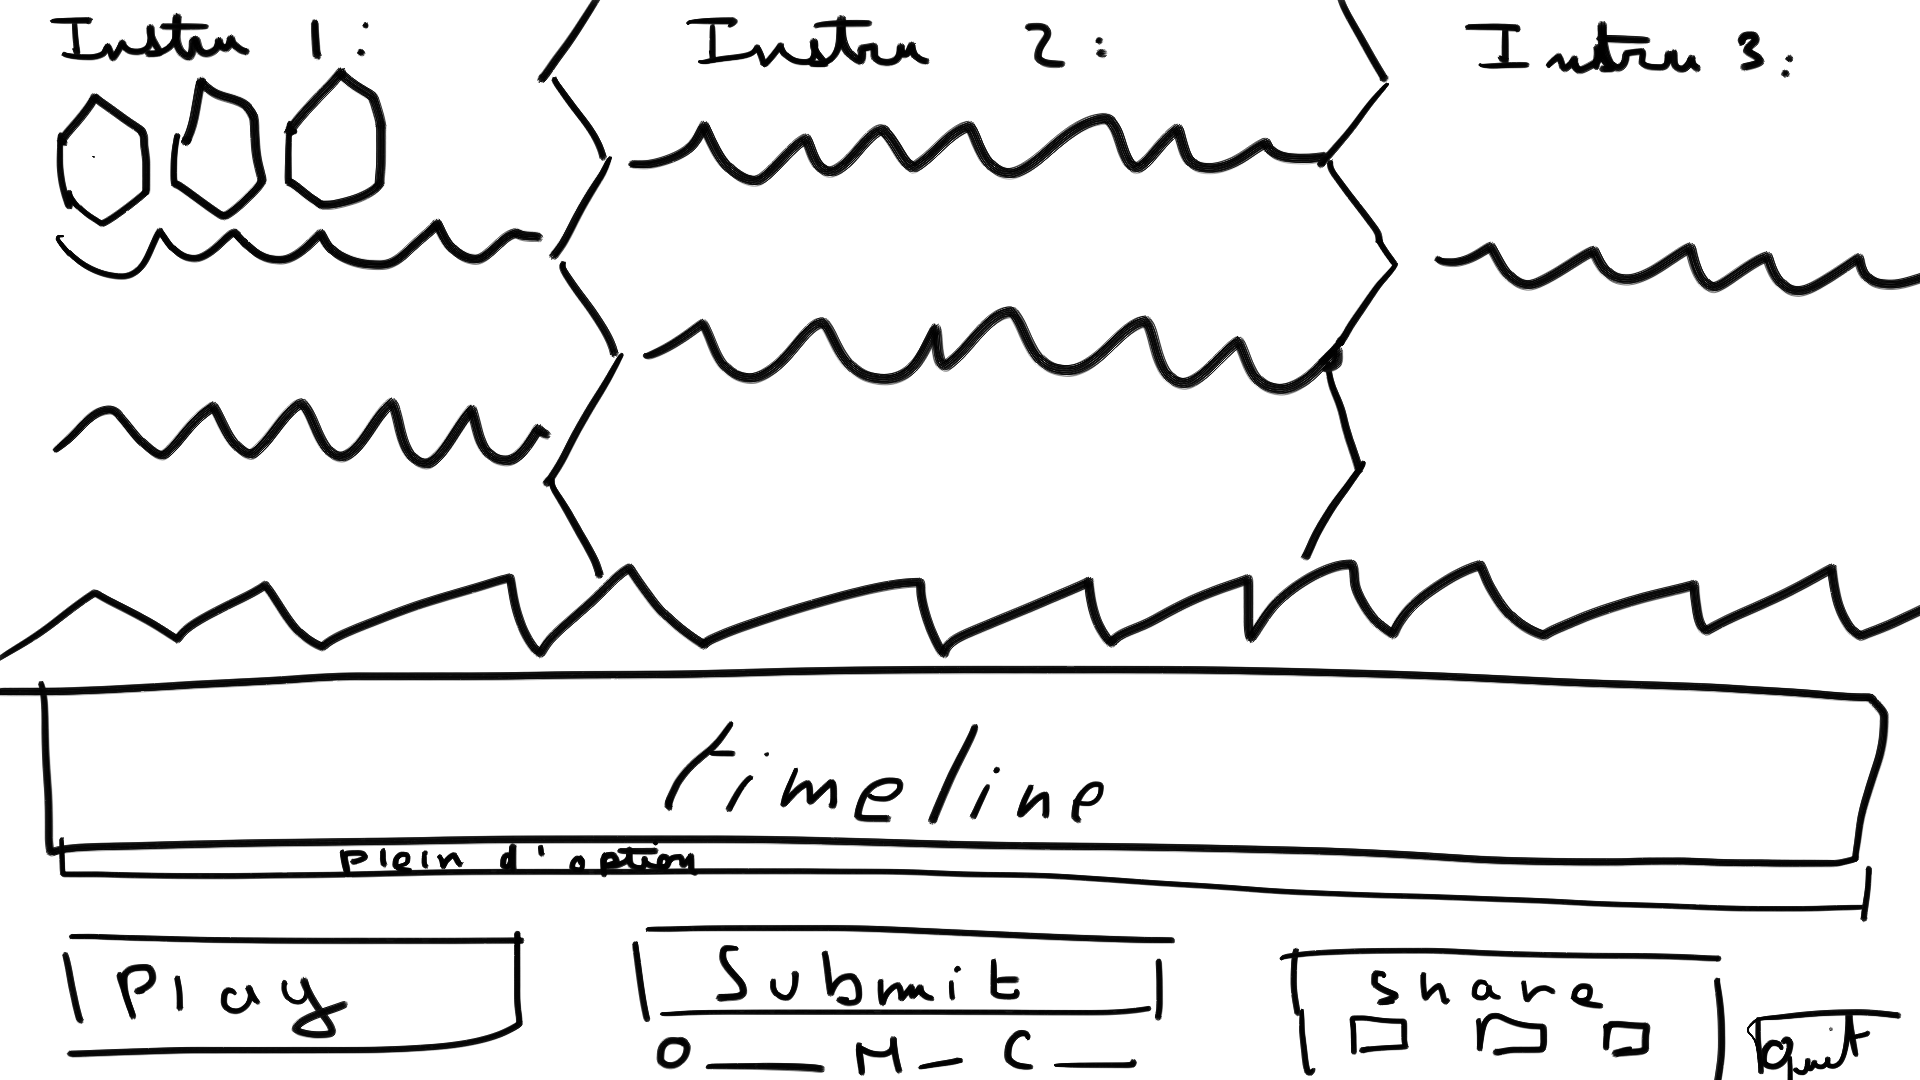 Instru 1:
Instru 2:
Instru 3:
timeline
plein d'option
Play
Submit
share
O M C
quit